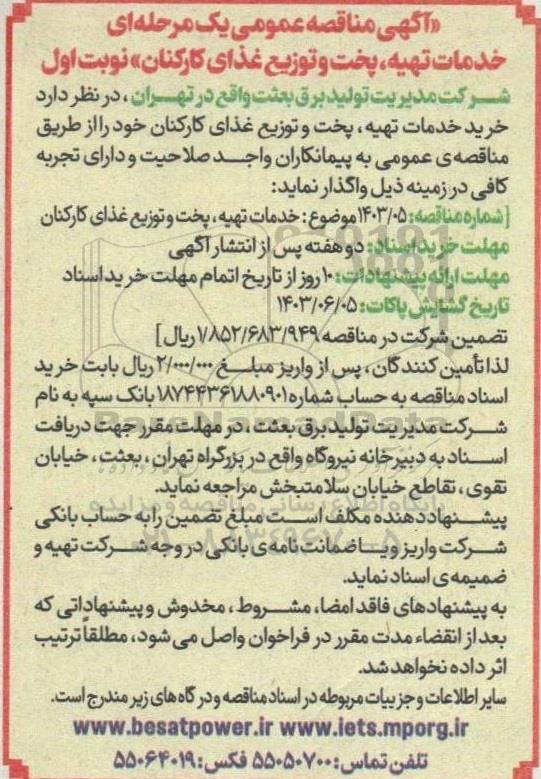 «آگهی مناقصه عمومی یک مرحله‌ای
خدمات تهیه، پخت و توزیع غذای کارکنان» نوبت اول
شرکت مدیریت تولید برق بعثت واقع در تهران، در نظر دارد
خرید خدمات تهیه، پخت و توزیع غذای کارکنان خود را از طریق
مناقصه‌ی عمومی به پیمانکاران واجد صلاحیت و دارای تجربه
کافی در زمینه ذیل واگذار نماید:
[شماره مناقصه: ۱۴۰۳/۰۵ موضوع: خدمات تهیه، پخت و توزیع غذای کارکنان
مهلت خرید اسناد: دو هفته پس از انتشار آگهی
مهلت ارائه پیشنهادات: ۱۰ روز از تاریخ اتمام مهلت خرید اسناد
تاریخ گشایش پاکات: ۱۴۰۳/۰۶/۰۵
تضمین شرکت در مناقصه ۱/۸۵۲/۶۸۳/۹۴۹ ریال]
لذا تأمین کنندگان، پس از واریز مبلغ ۲/۰۰۰/۰۰۰ ریال بابت خرید
اسناد مناقصه به حساب شماره ۱۸۷۴۴۳۶۱۸۸۰۹۰۱ بانک سپه به نام
شرکت مدیریت تولید برق بعثت، در مهلت مقرر جهت دریافت
اسناد به دبیرخانه نیروگاه واقع در بزرگراه تهران، بعثت، خیابان
تقوی، تقاطع خیابان سلامتبخش مراجعه نماید.
پیشنهاد دهنده مکلف است مبلغ تضمین را به حساب بانکی
شرکت واریز و یا ضمانت نامه‌ی بانکی در وجه شرکت تهیه و
ضمیمه‌ی اسناد نماید.
به پیشنهادهای فاقد امضا، مشروط، مخدوش و پیشنهاداتی که
بعد از انقضاء مدت مقرر در فراخوان واصل می شود، مطلقاً ترتیب
اثر داده نخواهد شد.
سایر اطلاعات و جزییات مربوطه در اسناد مناقصه و درگاه های زیر مندرج است.
www.besatpower.ir www.iets.mporg.ir
تلفن تماس: ۵۵۰۵۰۷۰۰ فکس: ۵۵۰۶۴۰۱۹